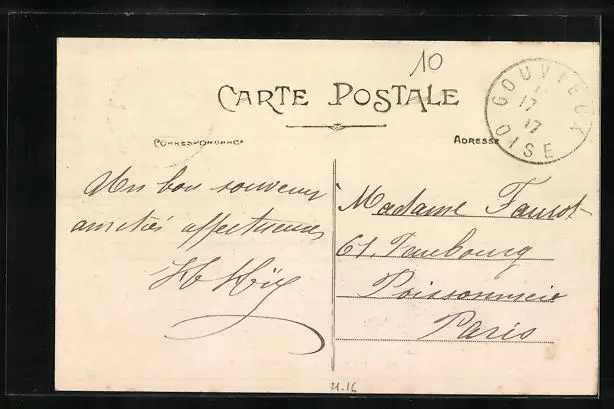 10
CARTE POSTALE
CORRESPONDANCE
ADRESSE
GOUVIEUX
17
17
OISE
Un bon souvenir
amitiés affectueuses
Madame Faurot
61, Faubourg
Poissonnière
Paris
21.16